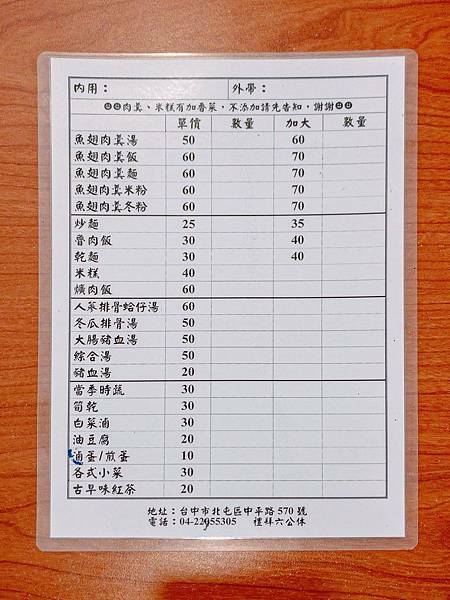 內用： 外帶：
☺☺肉羹、米糕有加香菜，不添加請先告知，謝謝☺☺
單價 數量 加大 數量
魚翅肉羹湯 50 60
魚翅肉羹飯 60 70
魚翅肉羹麵 60 70
魚翅肉羹米粉 60 70
魚翅肉羹冬粉 60 70
炒麵 25 35
魯肉飯 30 40
乾麵 30 40
米糕 40
爌肉飯 60
人蔘排骨蛤仔湯 60
冬瓜排骨湯 50
大腸豬血湯 50
綜合湯 50
豬血湯 20
當季時蔬 30
筍乾 30
白菜滷 30
油豆腐 20
滷蛋/煎蛋 10
各式小菜 30
古早味紅茶 20
地址：台中市北屯區中平路570號
電話：04-22955305 禮拜六公休